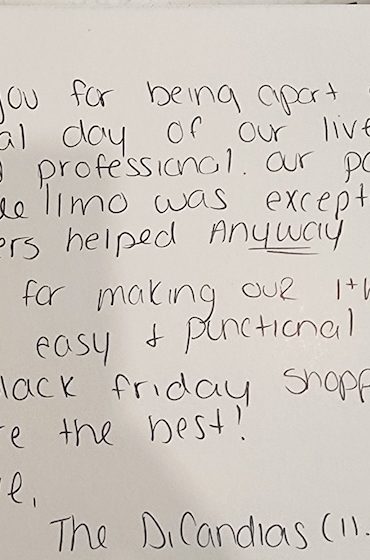 you for being apart
al day of our live
professional. our pa
limo was except
ers helped Anyway
for making our
easy + punctional
lack friday shopp
re the best!
e,
The DiCandias (11.